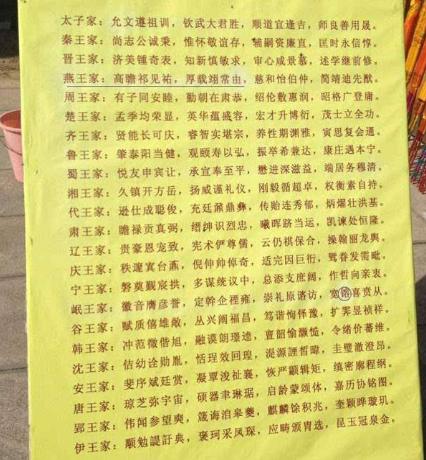 太子家：允文遵祖训，钦武大君胜，顺道宜逢吉，师良善用晟。
秦王家：尚志公诚秉，惟怀敬谊存，辅嗣资廉直，匡时永信惇。
晋王家：济美锺奇表，知新慎敏求，审心咸景慕，述学继前修。
燕王家：高瞻祁见祐，厚载翊常由，慈和怡伯仲，简靖迪先猷。
周王家：有子同安睦，勤朝在肃恭，绍伦敷惠润，昭格广登庸。
楚王家：孟季均荣显，英华蕴盛容，宏才升博衍，茂士立全功。
齐王家：贤能长可庆，睿智实堪宗，养性期渊雅，寅思复会通。
鲁王家：肇泰阳当健，观颐寿以弘，振卒希兼达，康庄遇本宁。
蜀王家：悦友申宾让，承宣奉至平，懋进深滋益，端居务穆清。
湘王家：久镇开方岳，扬威谨礼仪，刚毅循超卓，权衡素自持。
代王家：逊仕成聪俊，充廷鼐鼎彝，传贻连秀郁，炳燿壮洪基。
肃王家：瞻禄贡真弼，缙绅识烈忠，曦晖跻当运，凯谏处恒隆。
辽王家：贵豪恩宠致，宪术俨尊儒，云仍祺保合，操翰丽龙舆。
庆王家：秩邃寘台鼒，倪伸帅倬奇，适完因巨衔，鸳眷发需毗。
宁王家：磐奠觐宸拱，多谋统议中，总添支庶阔，作哲向亲衷。
岷王家：徽音膺彦誉，定幹企禋雍，崇礼原谘访，宽镕喜贲从。
谷王家：赋质僖雄敞，丛兴阐福昌，笃谐恂怿豫，扩霁显祯祥。
韩王家：冲范徵偕旭，融谟朗璟逵，亶韶愉灏慥，令绪价蕃维。
沈王家：佶幼诠勋胤，恬珵效回瑝，湜源諲晢暐，圭璧澈澄昂。
安王家：斐序斌廷赏，凝覃浚祉襄，恢严颛辑矩，缜密廓程纲。
唐王家：琼芝弥宇宙，硕器聿琳琚，启龄蒙颂体，嘉历协铭图。
郢王家：伟闻参望奭，箴诲洎皋夔，麒麟馀积兆，奎颖晔璇玑。
伊王家：颙勉諟訏典，褒珂采凤琛，应畴颁胄选，昆玉冠泉金，